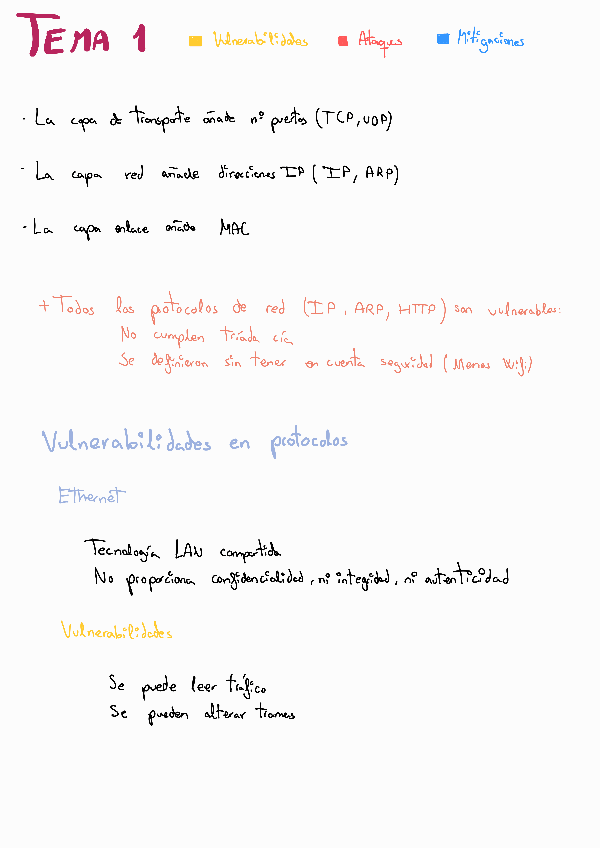 TEMA 1 Vulnerabilidades Ataques Mitigaciones
· La capa de transporte añade nº puertos (TCP, UDP)
· La capa red añade direcciones IP (IP, ARP)
· La capa enlace añade MAC
+ Todos los protocolos de red (IP, ARP, HTTP) son vulnerables:
No cumplen tríada cia
Se definieron sin tener en cuenta seguridad (Menos Wifi)
Vulnerabilidades en protocolos
Ethernet
Tecnología LAN compartida
No proporciona confidencialidad, ni integridad, ni autenticidad
Vulnerabilidades
Se puede leer tráfico
Se pueden alterar tramas